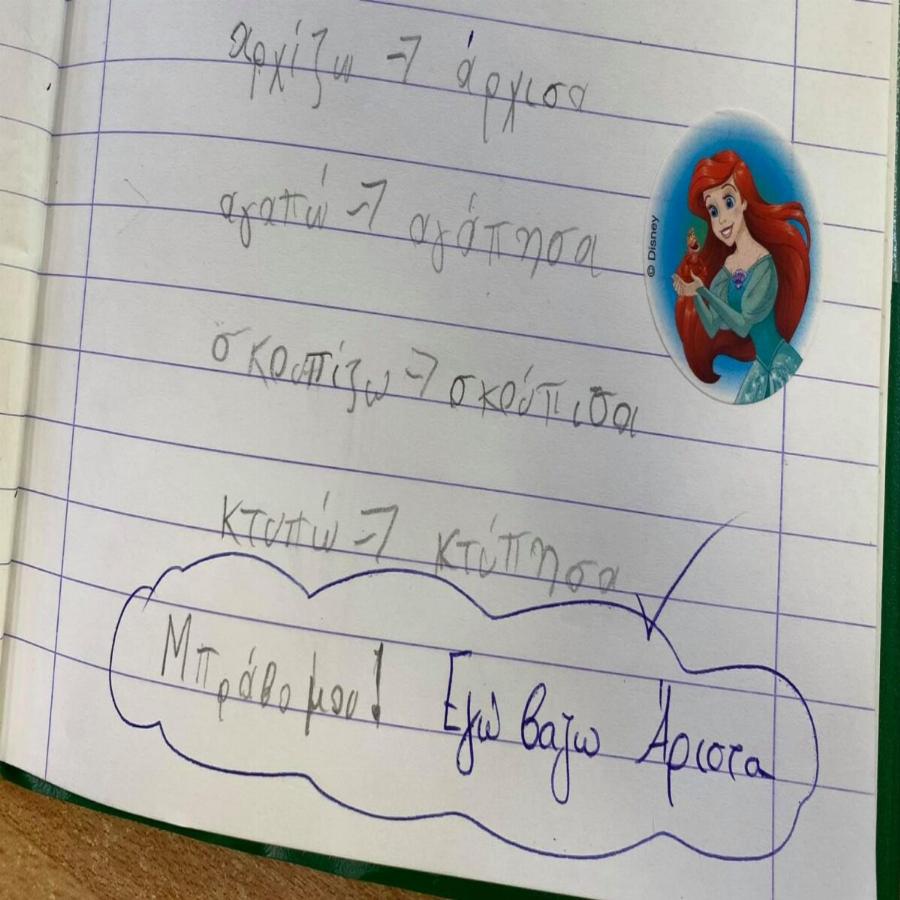 αρχίζω => άρχισα
αγαπώ => αγάπησα
© Disney
σκουπίζω => σκούπισα
κτυπώ => κτύπησα
Μπράβο μου! Εγώ βαζω Άριστα